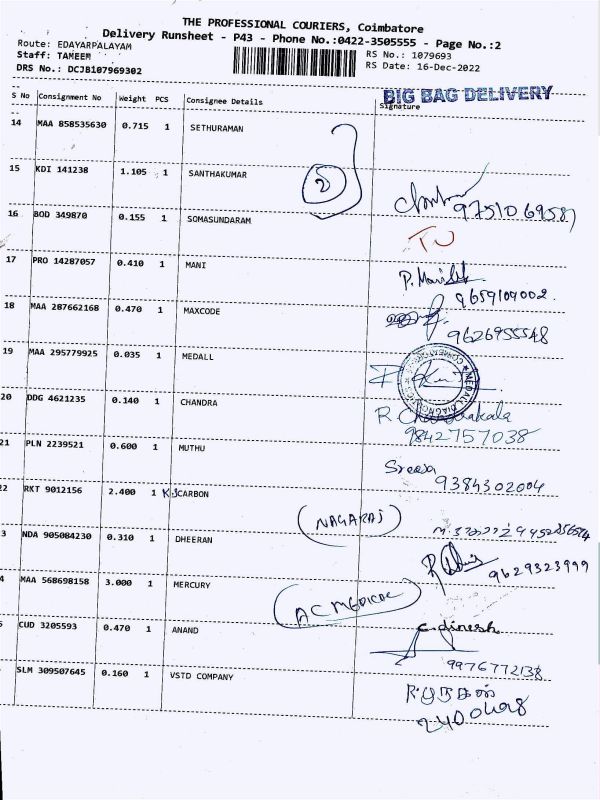 THE PROFESSIONAL COURIERS, Coimbatore
Delivery Runsheet - P43 - Phone No.:0422-3505555 - Page No.:2
Route: EDAYARPALAYAM
RS No.: 1079693
Staff: TAMEEM
RS Date: 16-Dec-2022
DRS No.: DCJB107969302
BIG BAG DELIVERY
S No Consignment No Weight PCS Consignee Details Signature
14 MAA 858535630 0.715 1 SETHURAMAN
15 KDI 141238 1.105 1 SANTHAKUMAR 2
9751069587
16 BOD 349870 0.155 1 SOMASUNDARAM
TU
17 PRO 14287057 0.410 1 MANI
9659109002
18 MAA 287662168 0.470 1 MAXCODE
9626955548
19 MAA 295779925 0.035 1 MEDALL
MEDALL DIAGNOSTICS COIMBATORE
20 DDG 4621235 0.140 1 CHANDRA
R Chandrakala
9842757038
21 PLN 2239521 0.600 1 MUTHU
Sreeja
9384302004
22 RKT 9012156 2.400 1 KJCARBON
(NAGARAJ)
3 NDA 905084230 0.310 1 DHEERAN
9629323999
4 MAA 568698158 3.000 1 MERCURY
AC MEDICAL
5 CUD 3205593 0.470 1 ANAND
C. dinesh
9976772138
SLM 309507645 0.160 1 VSTD COMPANY